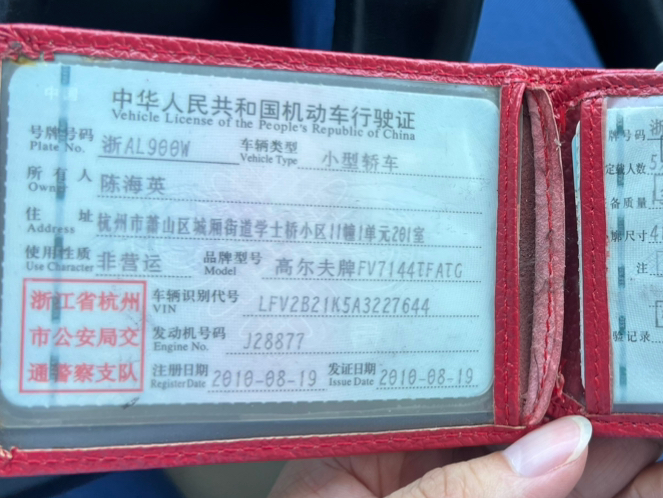 中华人民共和国机动车行驶证
Vehicle License of the People's Republic of China
号牌号码 浙AL900W 车辆类型 小型轿车
Plate No. Vehicle Type
所有人 陈海英
Owner
住址 杭州市萧山区城厢街道学士桥小区11幢1单元201室
Address
使用性质 非营运 品牌型号 高尔夫牌FV7144TFATG
Use Character Model
浙江省杭州
市公安局交
通警察支队
车辆识别代号 LFV2B21K5A3227644
VIN
发动机号码 J28877
Engine No.
注册日期 2010-08-19 发证日期 2010-08-19
Register Date Issue Date
牌号码 浙
定载人数
备质量
廓尺寸
注
验记录